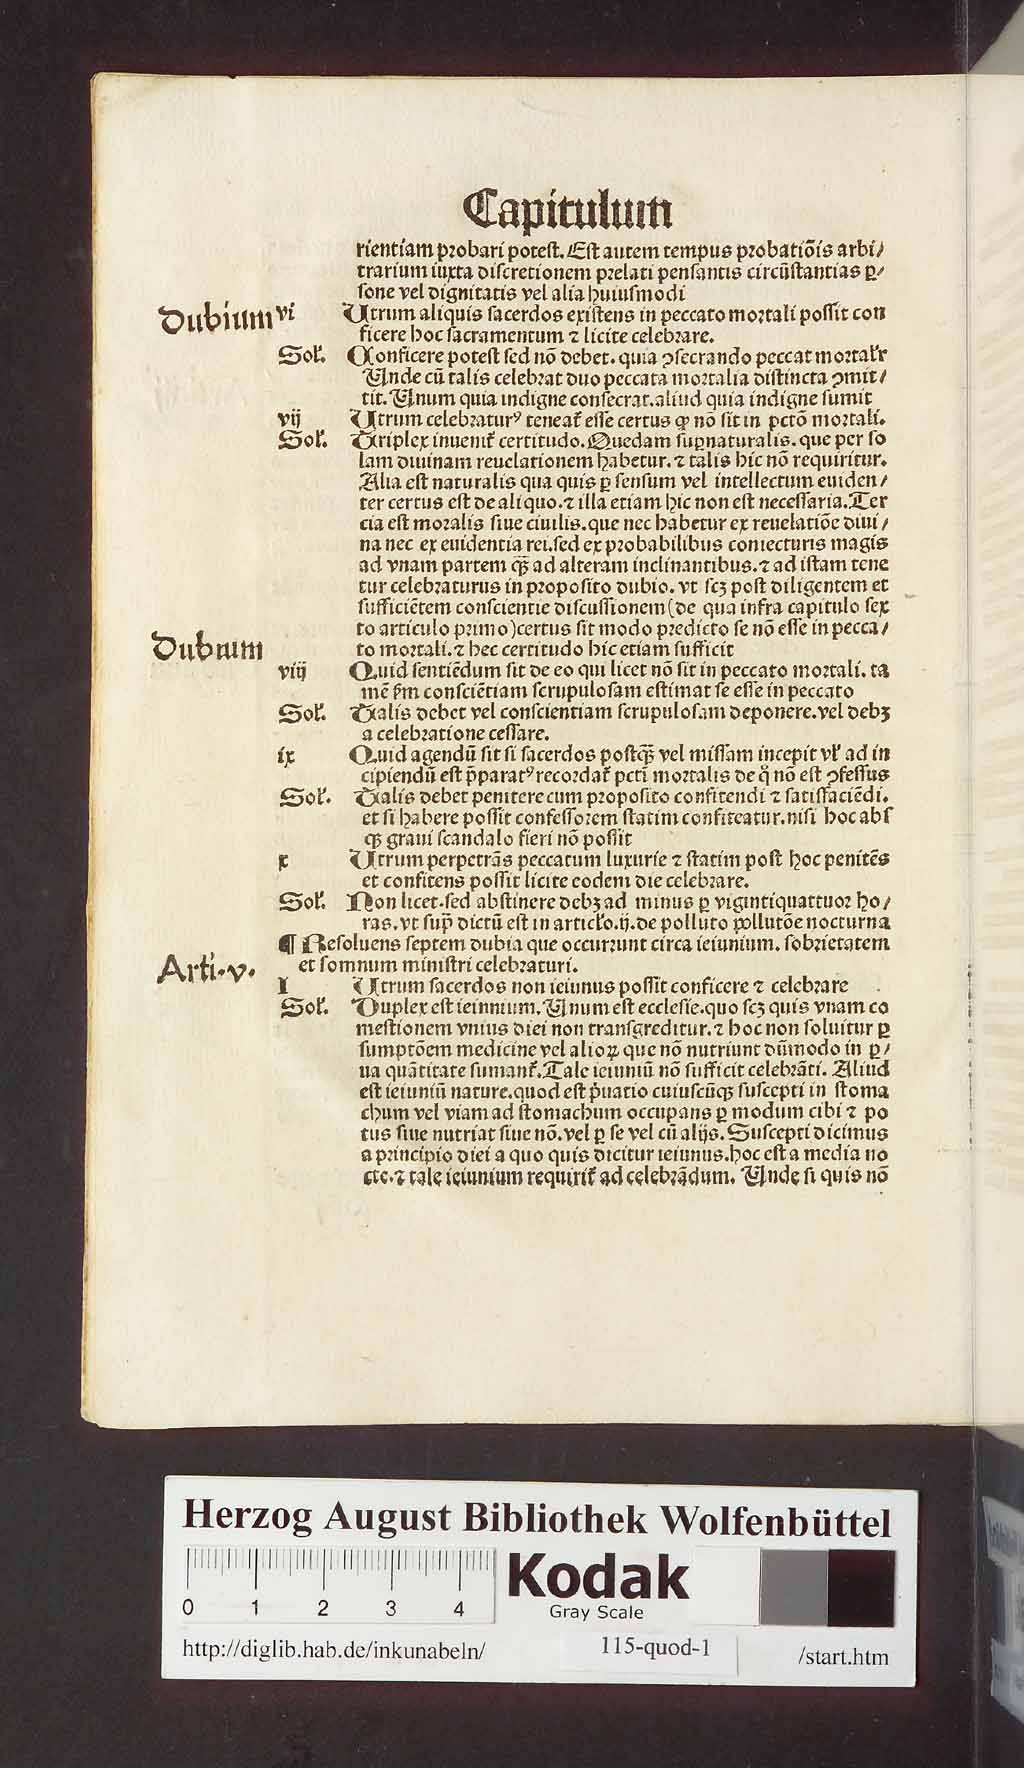 Capitulum
rientiam probari potest. Est autem tempus probatiōis arbi/
trarium iuxta discretionem prelati pensantis circūstantias ꝑ/
sone vel dignitatis vel alia huiusmodi
Dubium vi Utrum aliquis sacerdos existens in peccato mortali possit con
ficere hoc sacramentum ⁊ licite celebrare.
Sol'. Conficere potest sed nō debet. quia ꝯsecrando peccat mortalr̄
Unde cū talis celebrat duo peccata mortalia distincta ꝯmit/
tit. Unum quia indigne consecrat. aliud quia indigne sumit
vij Utrum celebraturꝰ teneat̄ esse certus ꝙ nō sit in pctō mortali.
Sol'. Triplex inuenit̄ certitudo. Quedam suꝑnaturalis. que per so
lam diuinam reuelationem habetur. ⁊ talis hic nō requiritur.
Alia est naturalis qua quis ꝑ sensum vel intellectum euiden/
ter certus est de aliquo. ⁊ illa etiam hic non est necessaria. Ter
cia est moralis siue ciuilis. que nec habetur ex reuelatiōe diui/
na nec ex euidentia rei. sed ex probabilibus coniecturis magis
ad vnam partem qꝫ̄ ad alteram inclinantibus. ⁊ ad istam tene
tur celebraturus in proposito dubio. vt scꝫ post diligentem et
sufficiētem conscientie discussionem (de qua infra capitulo sex
to articulo primo) certus sit modo predicto se nō esse in pecca/
Dubium
to mortali. ⁊ hec certitudo hic etiam sufficit
viij Quid sentiēdum sit de eo qui licet nō sit in peccato mortali. ta
mē ẜm consciētiam scrupulosam estimat se esse in peccato
Sol'. Talis debet vel conscientiam scrupulosam deponere. vel debꝫ
a celebratione cessare.
ix Quid agendū sit si sacerdos postqꝫ̄ vel missam incepit vl' ad in
cipiendū est p̄paratꝰ recordat̄ pctī mortalis de q̊ nō est ꝯfessus
Sol'. Talis debet penitere cum proposito confitendi ⁊ satisfaciēdi.
et si habere possit confessorem statim confiteatur. nisi hoc abs
qꝫ graui scandalo fieri nō possit
x Utrum perpetrās peccatum luxurie ⁊ statim post hoc penitēs
et confitens possit licite eodem die celebrare.
Sol'. Non licet. sed abstinere debꝫ ad minus ꝑ vigintiquattuor ho/
ras. vt sup̄ dictū est in articl'o. ij. de polluto pollutōe nocturna
¶ Resoluens septem dubia que occurrunt circa ieiunium. sobrietatem
et somnum ministri celebraturi.
Arti. v.
I Utrum sacerdos non ieiunus possit conficere ⁊ celebrare
Sol'. Duplex est ieiunium. Unum est ecclesie. quo scꝫ quis vnam co
mestionem vnius diei non transgreditur. ⁊ hoc non soluitur ꝑ
sumptōem medicine vel alioꝝ que nō nutriunt dūmodo in ꝑ/
ua quātitate sumant̄. Tale ieiuniū nō sufficit celebrāti. Aliud
est ieiuniū nature. quod est p̄uatio cuiuscūqꝫ suscepti in stoma
chum vel viam ad stomachum occupans ꝑ modum cibi ⁊ po
tus siue nutriat siue nō. vel ꝑ se vel cū alijs. Suscepti dicimus
a principio diei a quo quis dicitur ieiunus. hoc est a media no
cte. ⁊ tale ieiunium requirit̄ ad celebrādum. Unde si quis nō
Herzog August Bibliothek Wolfenbüttel
Kodak
Gray Scale
0 1 2 3 4
http://diglib.hab.de/inkunabeln/ 115-quod-1 /start.htm